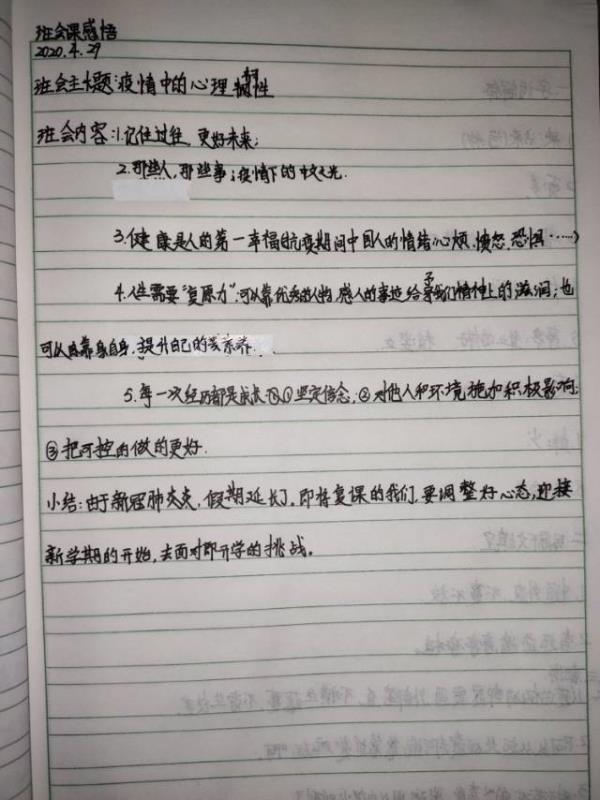 班会课感悟
2020.4.29
班会主题:疫情中的心理韧性
班会内容:1.记住过往,更好未来;
2.那些人,那些事;疫情下的中文之光.
3.健康是人的第一幸福(抗疫期间中国人的情绪:心烦.愤怒.恐惧……)
4.人生需要"复原力":可以靠优秀的人物,感人的事迹给予我们精神上的滋润;也
可以自靠自身,提升自己的素养.
5.每一次经历都是成长:①坚定信念,②对他人和环境施加积极影响;
③把可控的做的更好.
小结:由于新冠肺炎,假期延长了.即将复课的我们,要调整好心态,迎接
新学期的开始,去面对即开学的挑战。